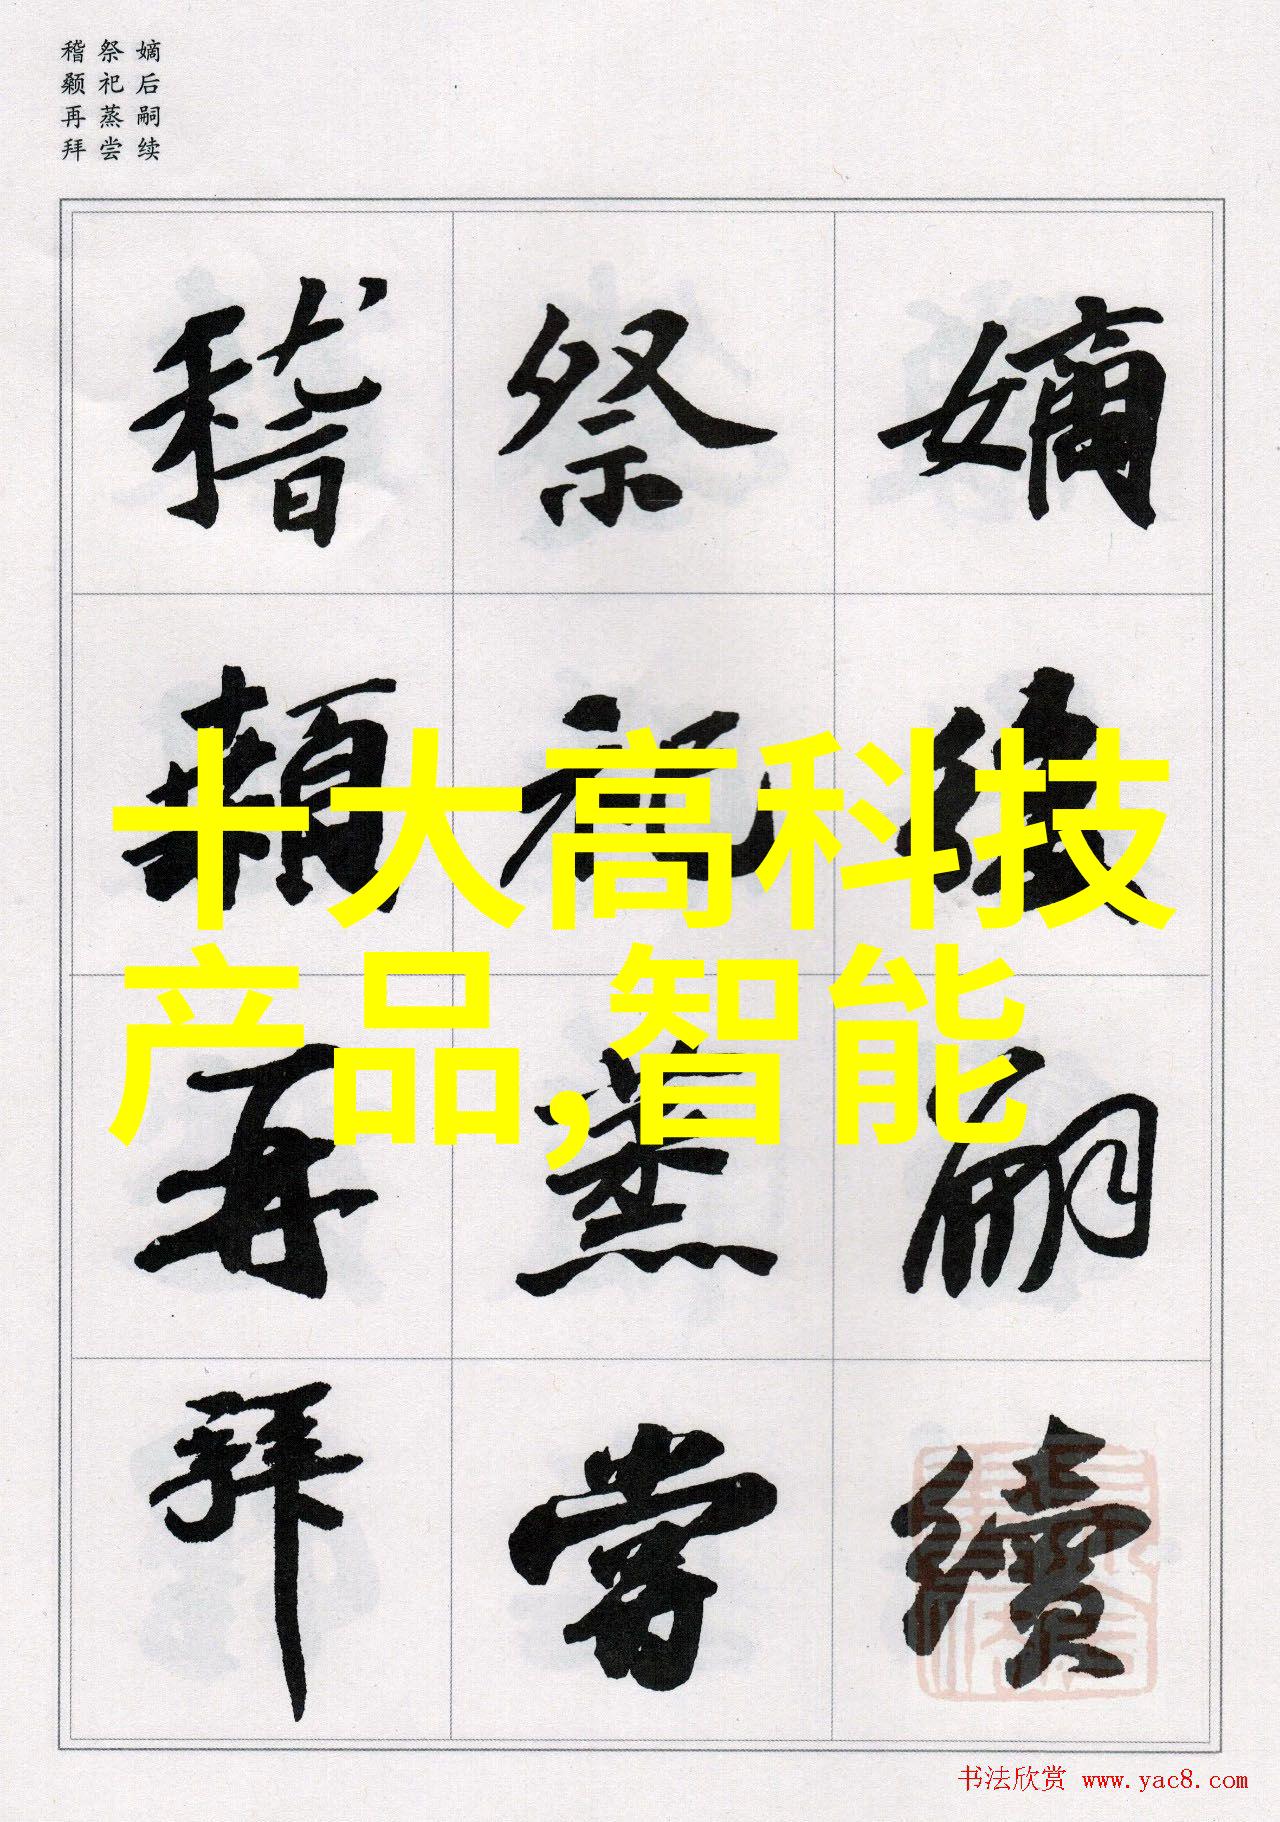 嫡后嗣续
祭祀蒸尝
稽颡再拜
嫡後嗣續
祭祀蒸嘗
稽顙再拜
十大高科技
产品,智能
书法欣赏 www.yac8.com